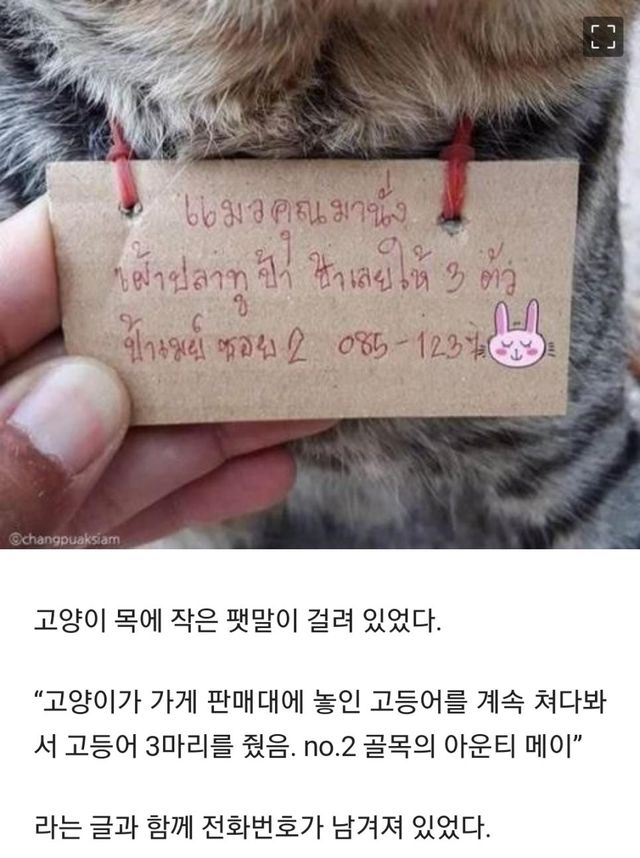 แมวคุณมานั่ง
เฝ้าปลาทู ป้า ป้าเลยให้ 3 ตัว
ป้าเมย์ ซอย 2 085-1237
©changpuaksiam
고양이 목에 작은 팻말이 걸려 있었다.
“고양이가 가게 판매대에 놓인 고등어를 계속 쳐다봐
서 고등어 3마리를 줬음. no.2 골목의 아운티 메이”
라는 글과 함께 전화번호가 남겨져 있었다.